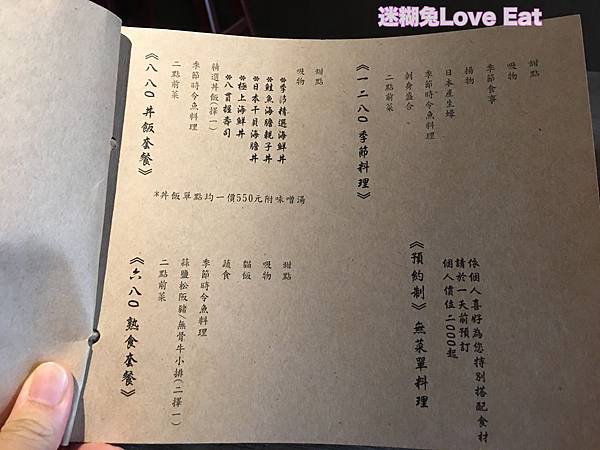 迷糊兔Love Eat
《八八〇丼飯套餐》
二點前菜
季節時令魚料理
精選丼飯(擇一)
※八貫握壽司
※極上海鮮丼
※日本干貝海膽丼
※鮭魚海膽親子丼
※季莎精選海鮮丼
吸物
甜點
*丼飯單點均一價550元附味噌湯
《一二八〇季節料理》
二點前菜
刺身盛合
季節時令魚料理
日本產生蠔
揚物
季節食事
吸物
甜點
《六八〇熟食套餐》
二點前菜
蒜鹽松阪豬/無骨牛小排(二擇一)
季節時令魚料理
蔬食
貓飯
吸物
甜點
《預約制》無菜單料理
依個人喜好為您特別搭配食材
請於一天前預訂
個人價位2000起